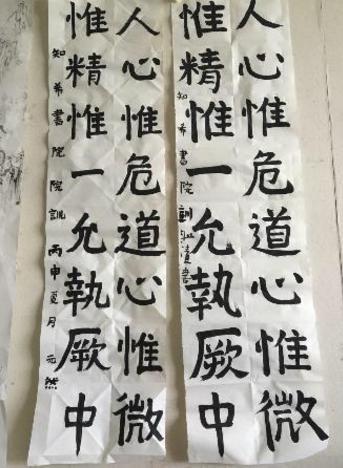 人心惟危道心惟微
惟精惟一允執厥中
知希書院訓 道書
人心惟危道心惟微
惟精惟一允執厥中
知希書院院訓 丙申夏月 元然